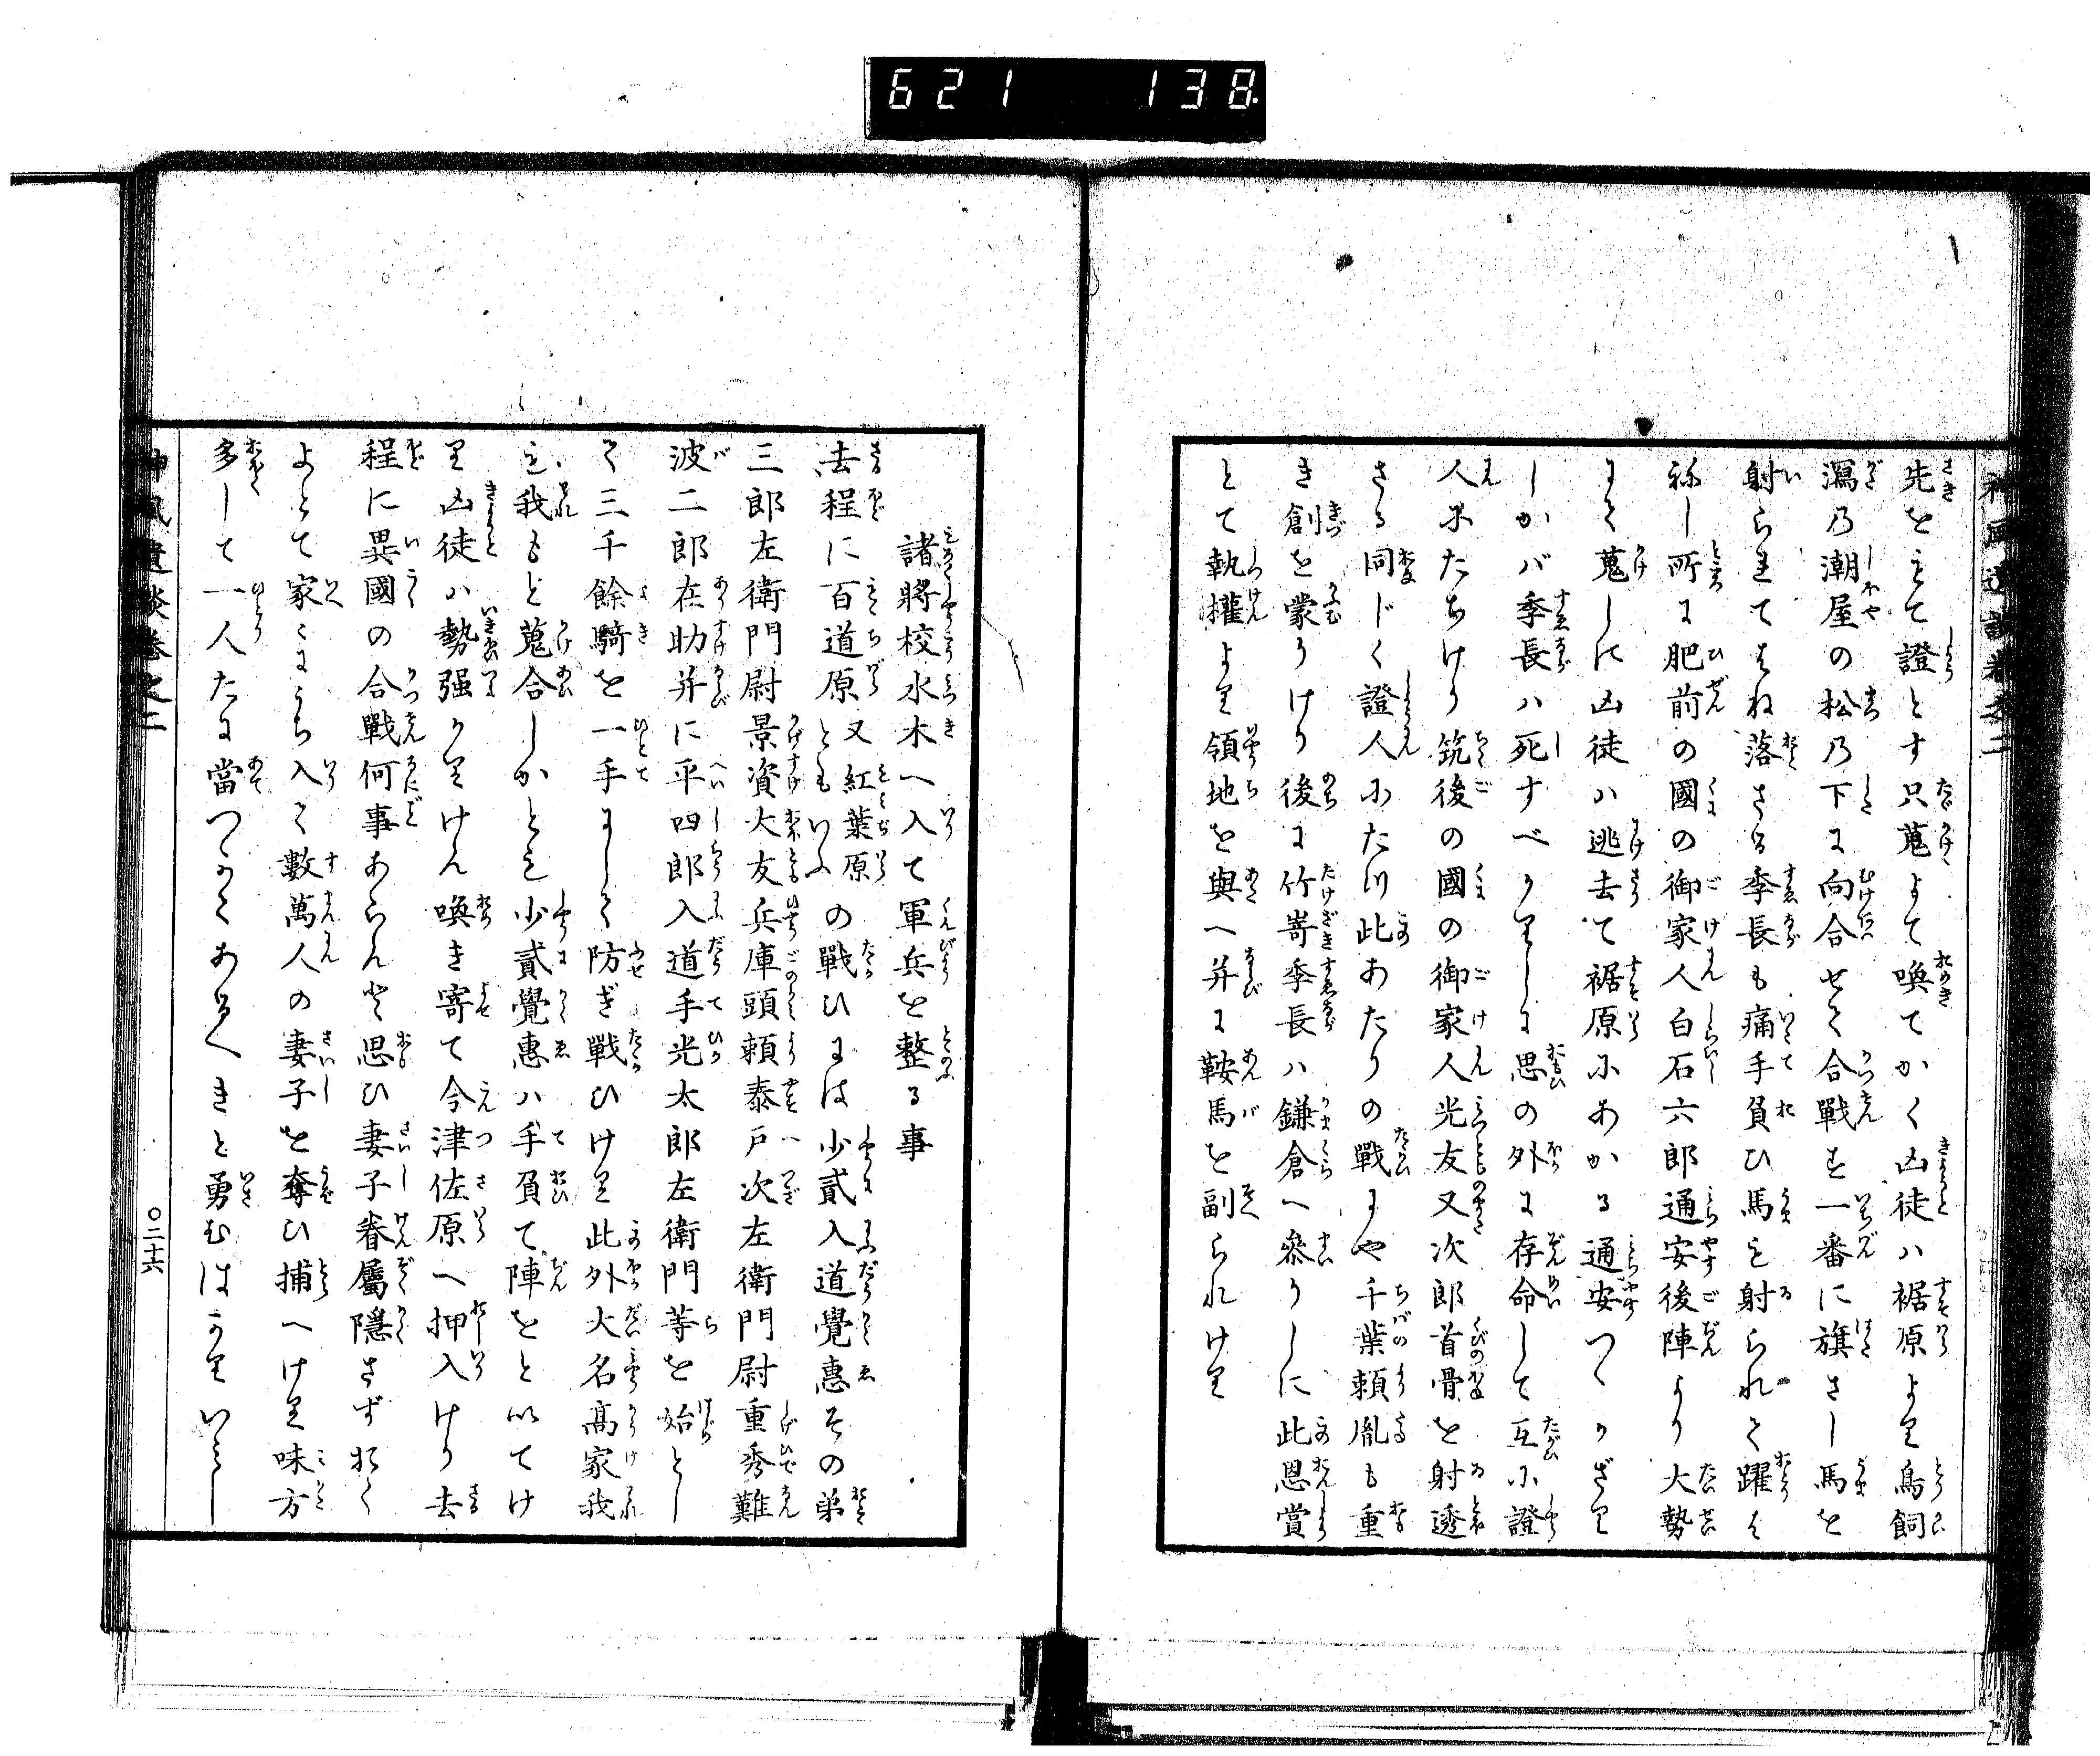 621 138
神風遺談卷之二
先をえて證とす只蒐よて喚てかく凶徒ハ裾原より鳥飼
潟乃潮屋の松乃下に向合せて合戰を一番に旗さし馬を
射られてはね落さる季長も痛手負ひ馬を射られて躍そ
祢し所に肥前の國の御家人白石六郎通安後陣より大勢
にて蒐しに凶徒ハ逃去て裾原にあかる通安つゝかざり
しかバ季長ハ死すべかりしに思の外に存命して互に證
人にたちけり筑後の國の御家人光友又次郎首骨を射透
さる同じく證人にたつ此あたりの戰にや千葉頼胤も重
き創を蒙りけり後に竹嵜季長ハ鎌倉へ參りしに此恩賞
とて執權より領地を與へ并に鞍馬を副られけり
諸將校水木へ入て軍兵を整る事
去程に百道原又紅葉原ともいふの戰ひには少貳入道覺惠その弟
三郎左衛門尉景資大友兵庫頭頼泰戸次左衛門尉重秀難
波二郎在助并に平四郎入道手光太郎左衛門等を始とし
て三千餘騎を一手にして防ぎ戰ひけり此外大名高家我
も我もと蒐合しかとも少貳覺惠ハ手負て陣をと以てけ
り凶徒ハ勢强かりけん喚き寄て今津佐原へ押入けり去
程に異國の合戰何事あらんと思ひ妻子眷屬隱さずおく
よとて家々にうち入て數萬人の妻子を奪ひ捕へけり味方
多して一人たに當つかくあるへきと勇むはかりいミし
神風遺談卷之二
〇二十六